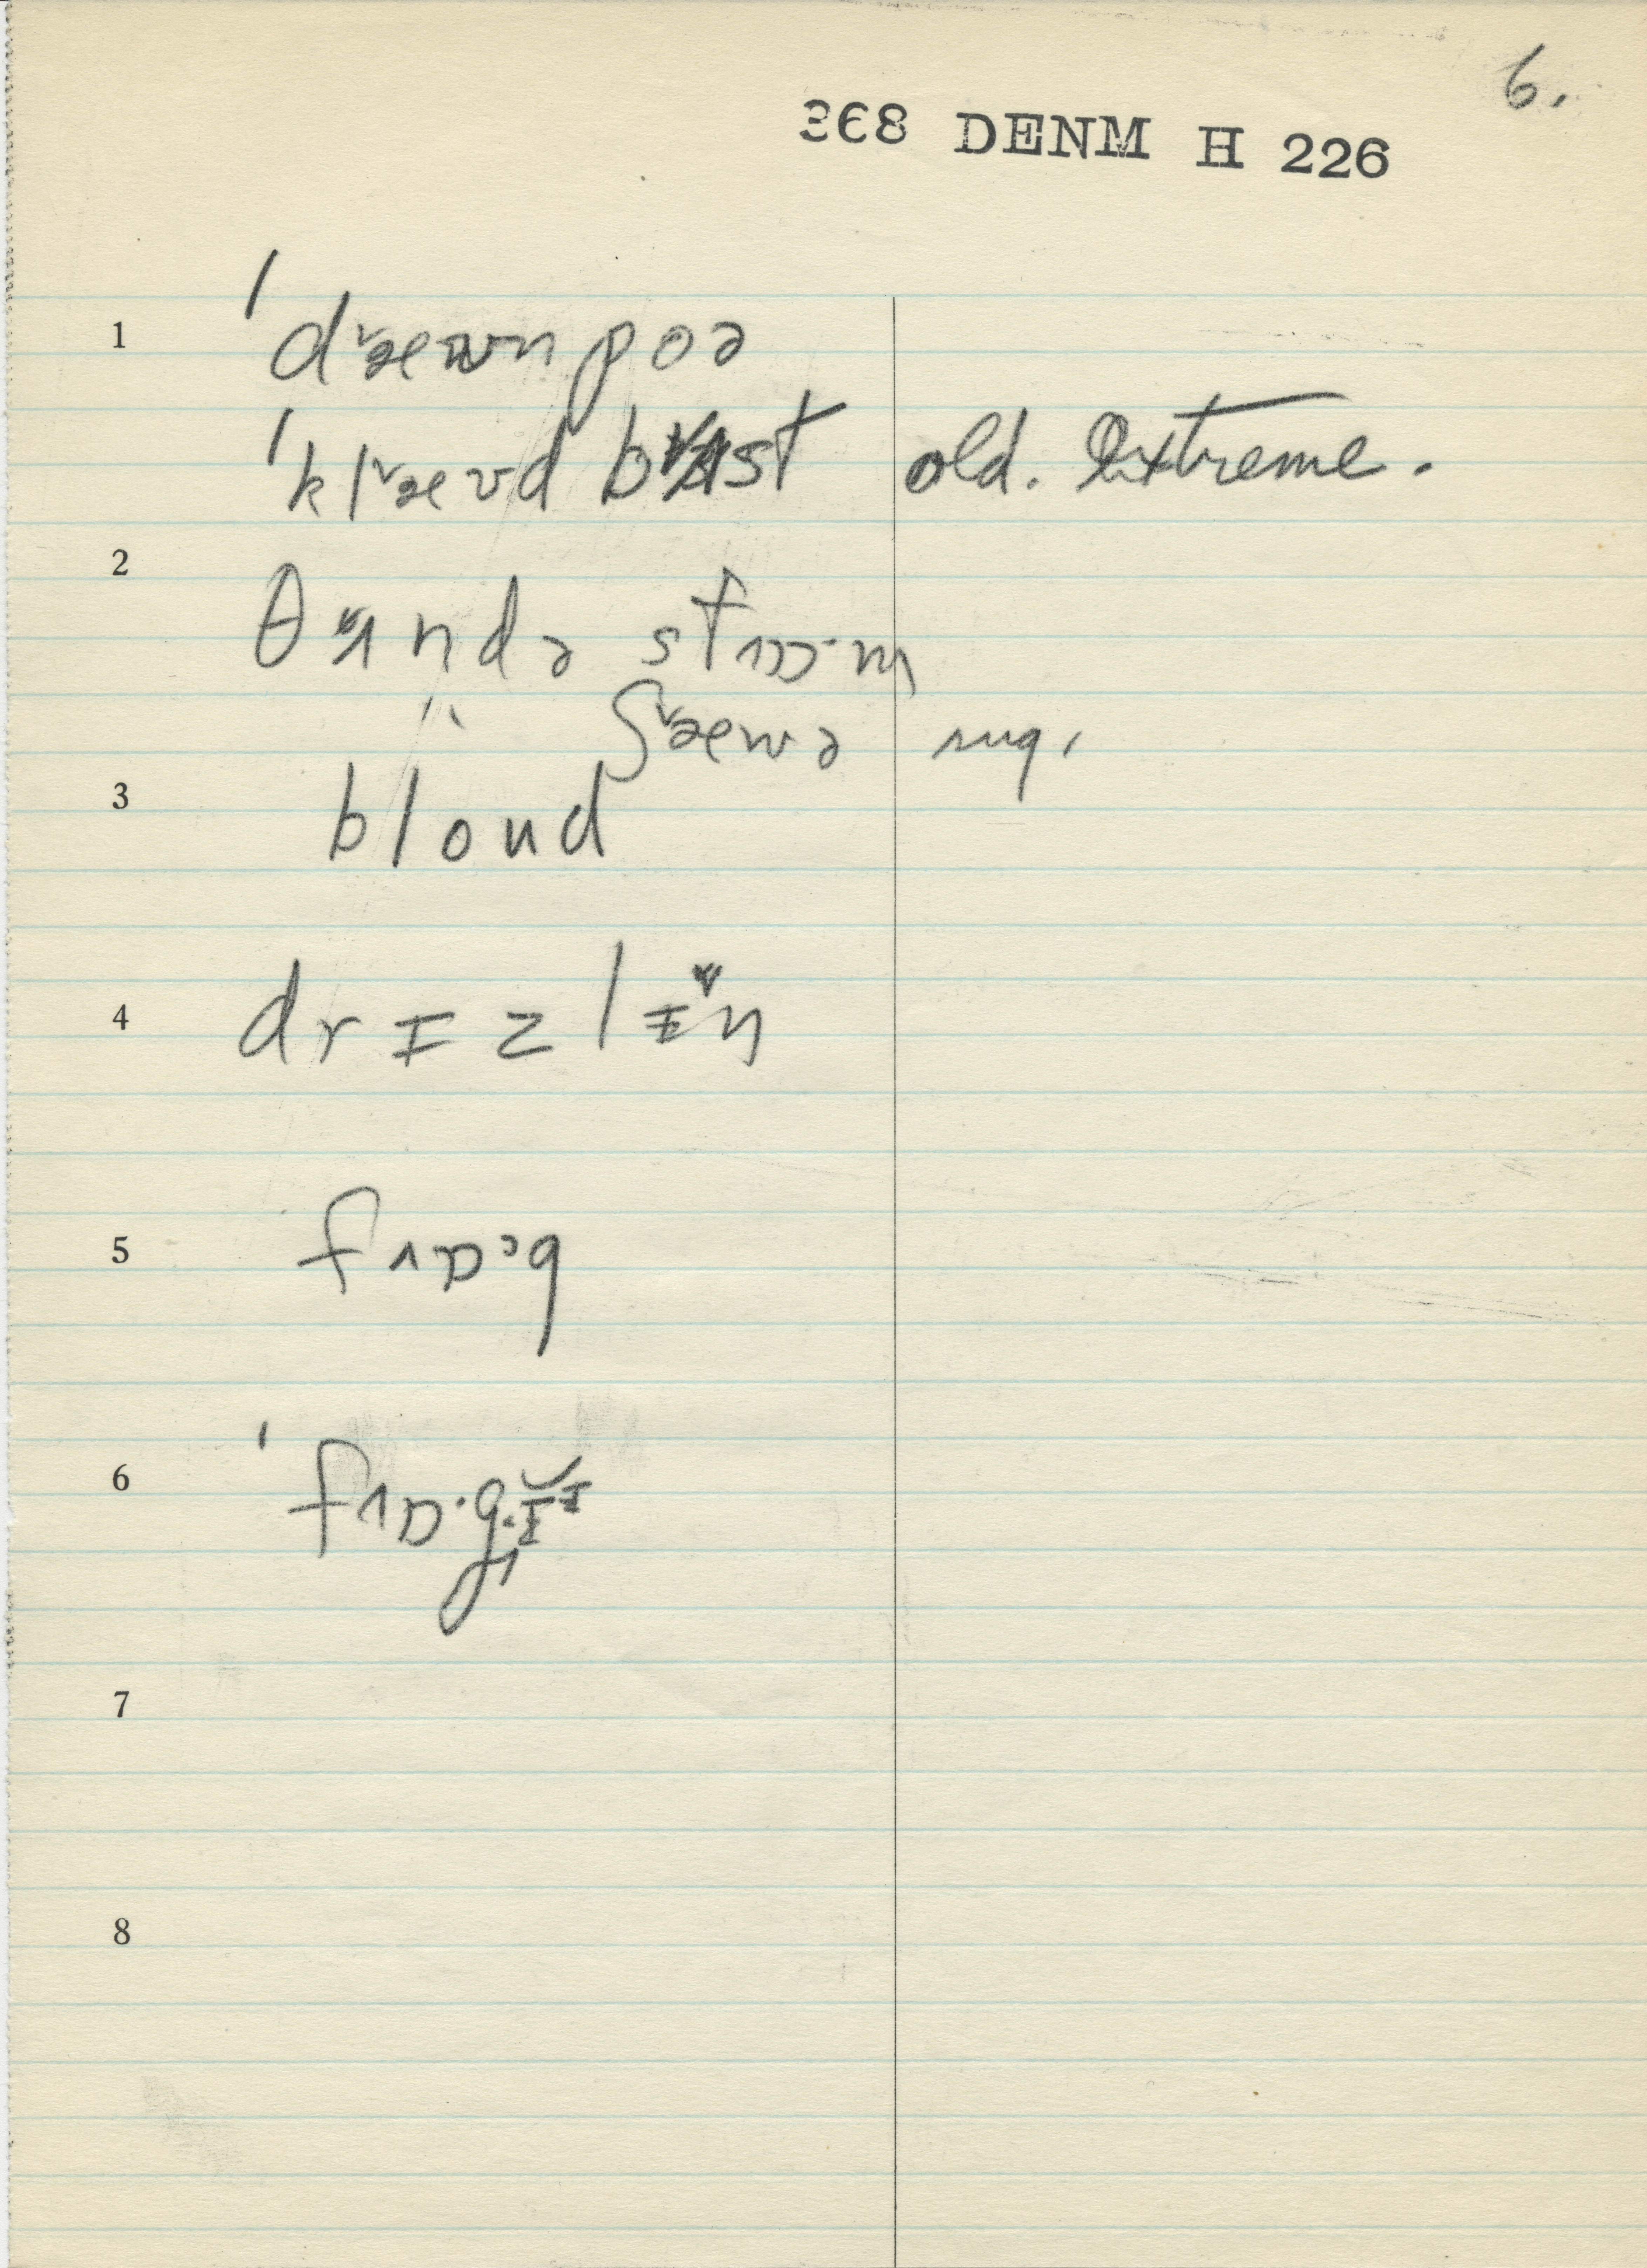 6.
368 DENM H 226
1 ˈdræʊnpoə
ˈklæʊd bɜst old. Extreme.
2 θɜndə stɒ·m
" ʃæʊə sug.
3 bloud
4 drɪzlɪŋ
5 fɒ·g
6 ˈfɒ·gɪ
7
8